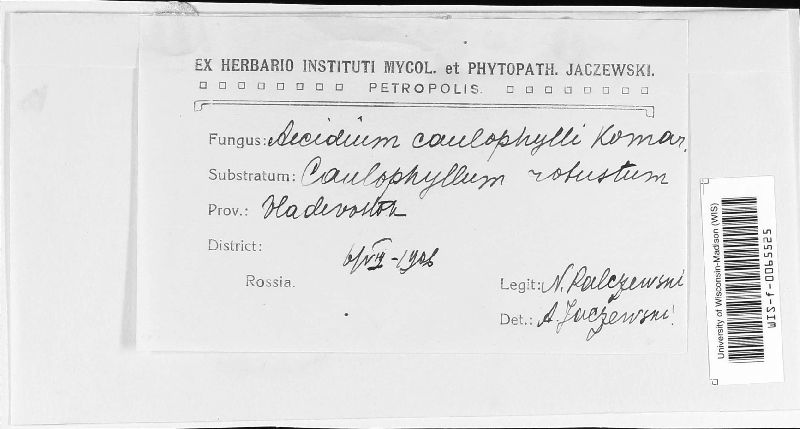 EX HERBARIO INSTITUTI MYCOL. et PHYTOPATH. JACZEWSKI.
PETROPOLIS.
Fungus: Aecidium caulophylli Komar.
Substratum: Caulophyllum robustum
Prov.: Vladivostok
District:
1906
Rossia.
Legit: N. Palczewski
Det.: A. Jaczewski
University of Wisconsin-Madison (WIS)
WIS-f-0065525